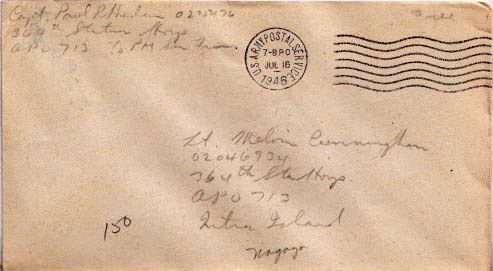 Capt. Paul
364th Station Hosp
APO 713 c/o PM San Fran.
Free
U.S. ARMY POSTAL SERVICE
7-8 PO
JUL 16
1946
Lt. Melvin Cunningham
02046934
364th Sta Hosp.
APO 713
Island
150